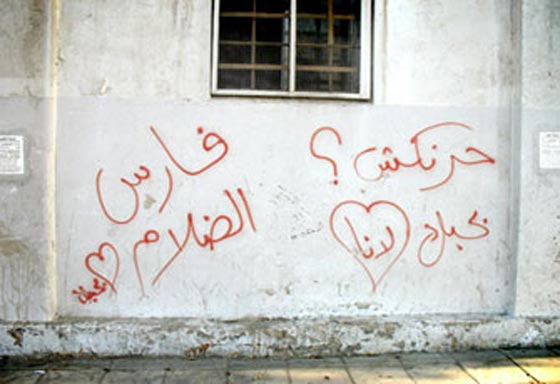 حرنكش؟
بحبك لانا
فارس
الضلام